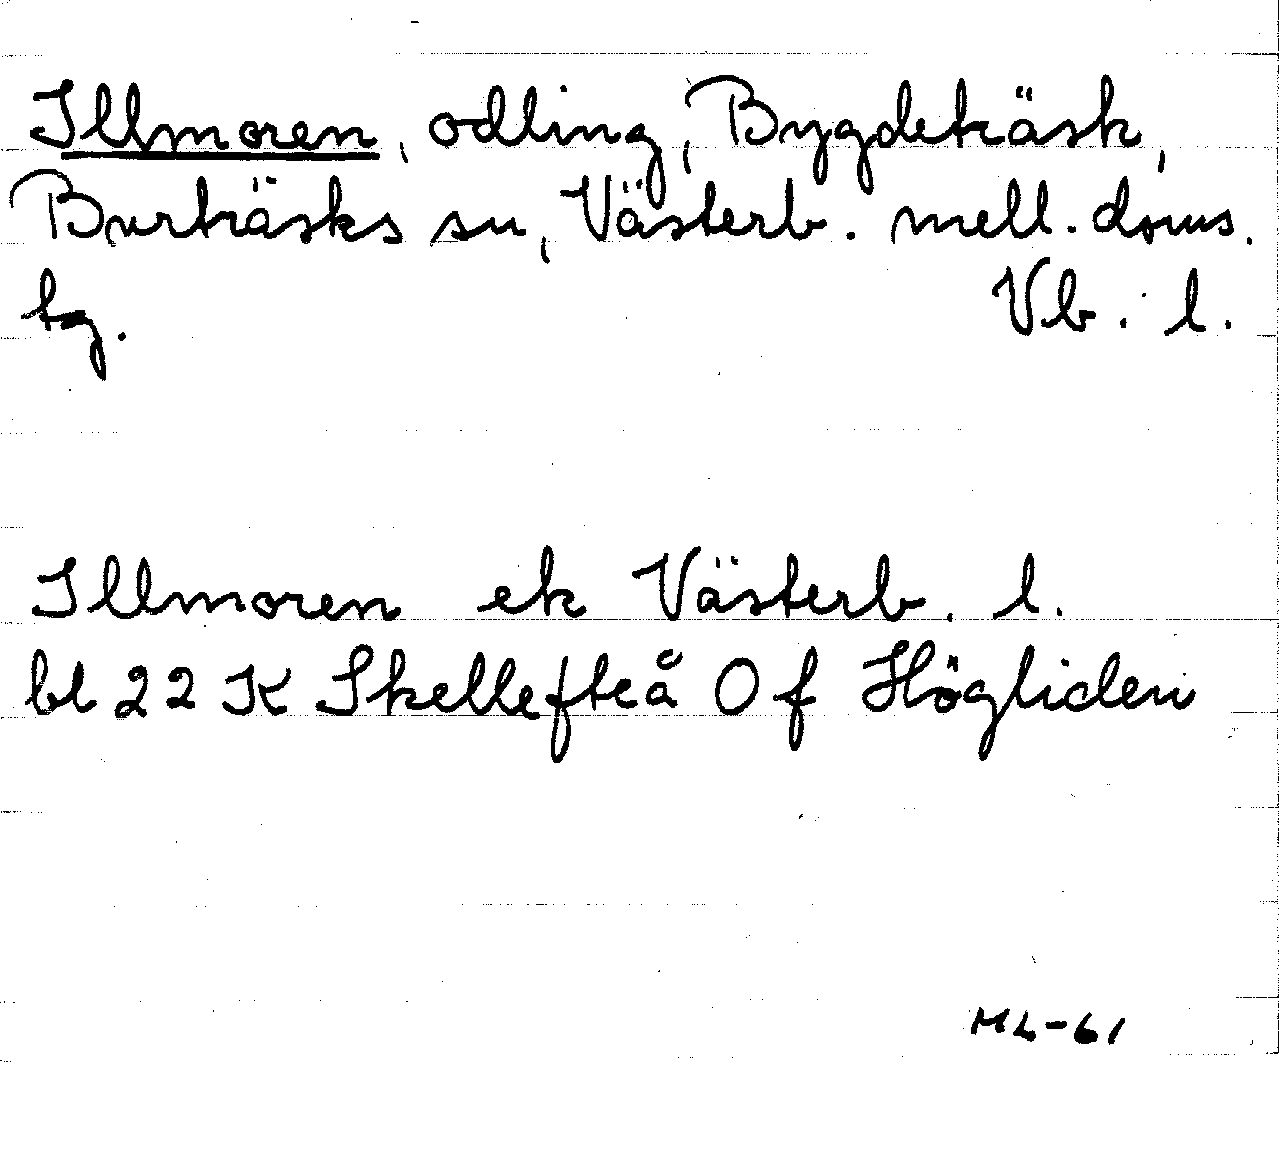 Illmoren, odling, Bygdeträsk,
Burträsks sn, Västerb. mell. doms.
tg. Vb. l.
Illmoren ek Västerb. l.
bl 22 K Skellefteå 0 f Högliden
ML-61